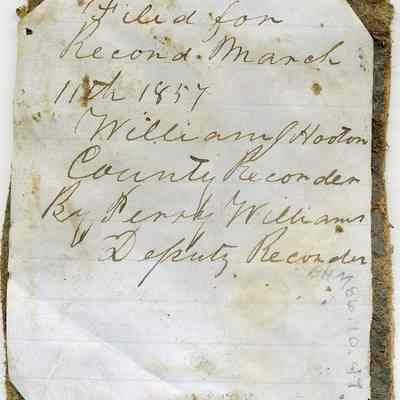 Filed for
Record March
11th 1857
William Hooton
County Recorder
By Perry Williams
Deputy Recorder